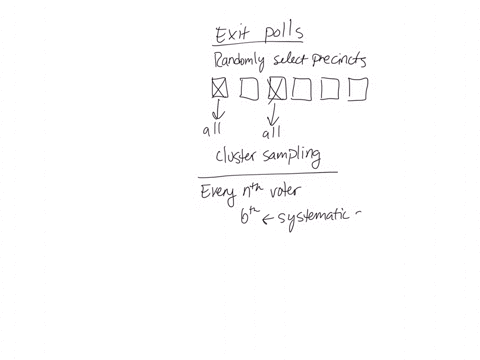 Exit polls
Randomly select precincts
all all
cluster sampling
Every nth voter
6th ← systematic -